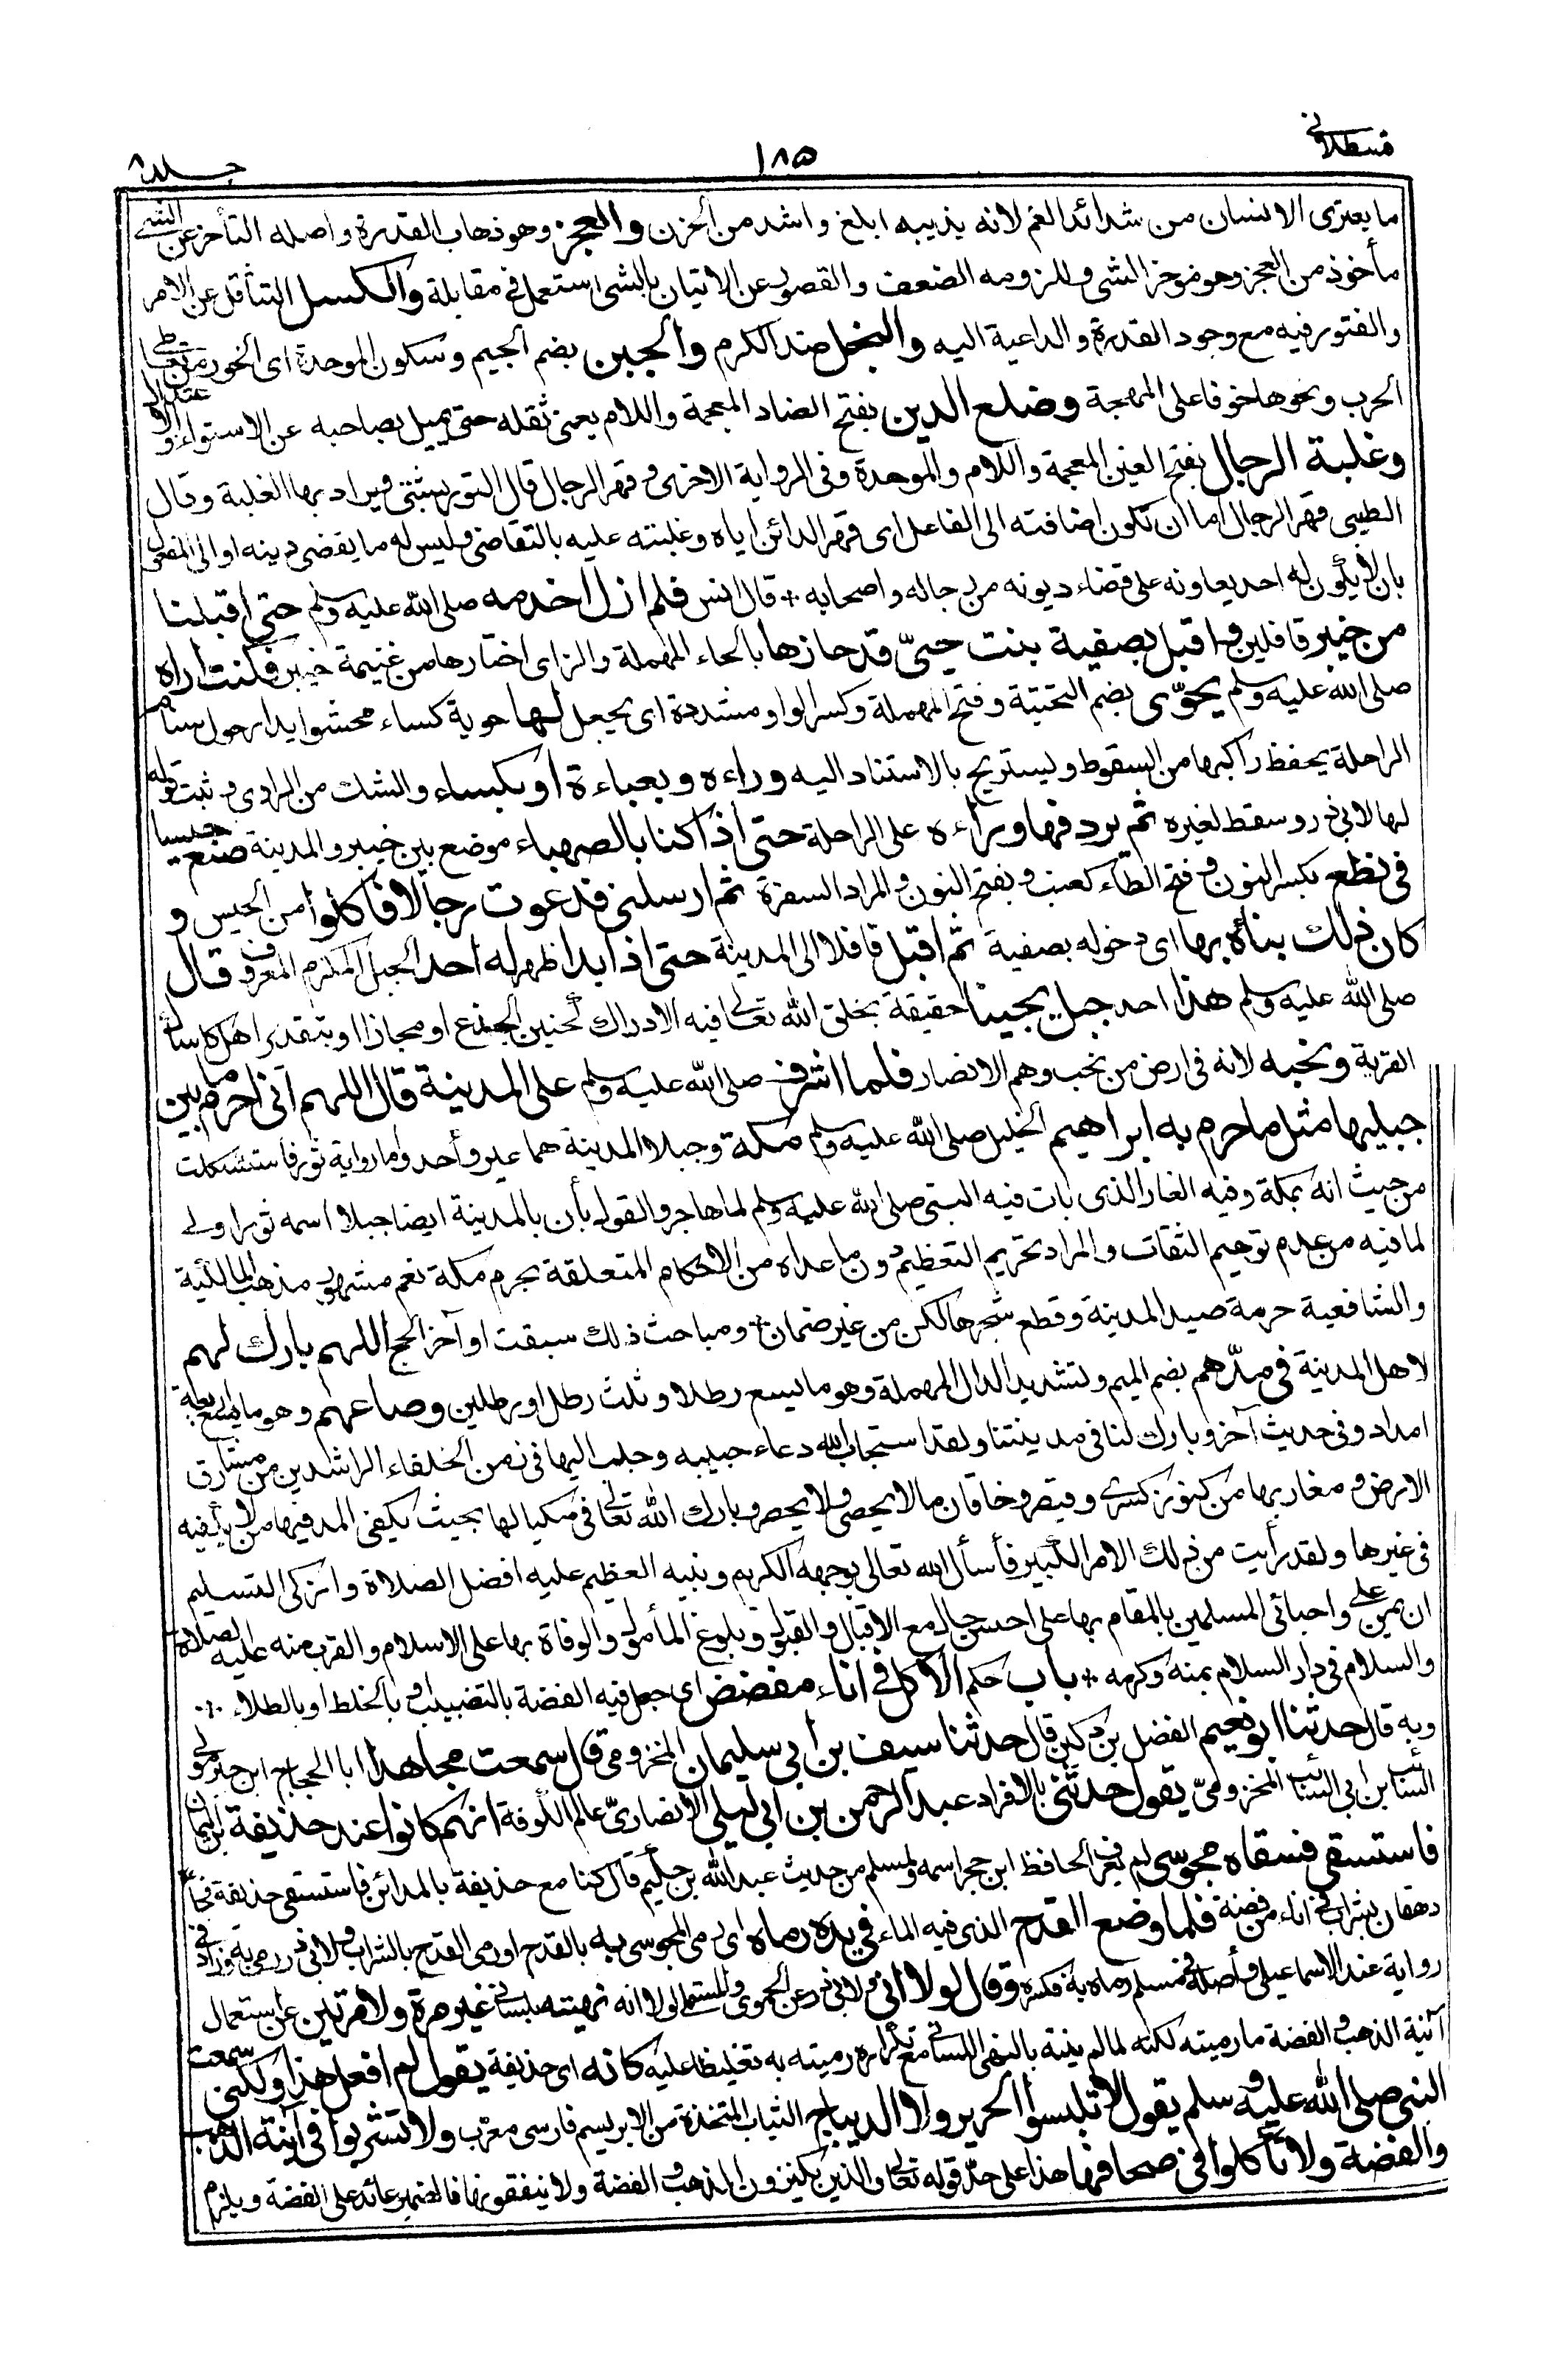 قسطلاني
١٨٥
جلد ٨
ما يعترى الانسان من شدائد الغم لانه يذيبه ابلغ واشد من الحزن والعجز وهو ذهاب القدرة واصله التأخر عن الشئ
مأخوذ من العجز وهو مؤخر الشئ وللزومه الضعف والقصور عن الاتيان بالشئ استعمل فى مقابلة والكسل التثاقل عن الامر
والفتور فيه مع وجود القدرة والداعية اليه والبخل ضد الكرم والجبن بضم الجيم وسكون الموحدة اى الخور من تعاطى
الحرب ونحوها خوفا على المهجة وضلع الدين بفتح الضاد المعجمة واللام يعنى ثقله حتى يميل بصاحبه عن الاستواء والاعتدال
وغلبة الرجال بفتح الغين المعجمة واللام والموحدة وفى الرواية الاخرى وقهر الرجال قال التوربشتى ويراد بها الغلبة وقال
الطيبى قهر الرجال اما ان تكون اضافته الى الفاعل اى قهر الدائن اياه وغلبته عليه بالتقاضى وليس له ما يقضى دينه او الى المفعول
بان لا يكون له احد يعاونه على قضاء ديونه من رجاله واصحابه * قال انس فلم ازل اخدمه صلى الله عليه وسلم حتى اقبلنا
من خيبر قافلين واقبل بصفية بنت حيىّ قد حازها بالحاء المهملة والزاى اختارها من غنيمة خيبر فكنت اراه
صلى الله عليه وسلم يحوّى بضم التحتية وفتح المهملة وكسر الواو مشددة اى يجعل لها حوية كساء محشوا يدار حول سنام
الراحلة يحفظ راكبها من السقوط ويستريح بالاستناد اليه وراءه وبعباءة او بكساء والشك من الراوى وثبت قوله
لها لابى ذر وسقط لغيره ثم يردفها وراءه على الراحلة حتى اذا كنا بالصهباء موضع بين خيبر والمدينة صنع حيسا
فى نطع بكسر النون وفتح الطاء كعنب وبفتح النون والمراد السفرة ثم ارسلنى فدعوت رجالا فاكلوا من الحيس و
كان ذلك بناءه بها اى دخوله بصفية ثم اقبل قافلا الى المدينة حتى اذا بدا ظهر له احد الجبل المكرم المعروف قال
صلى الله عليه وسلم هذا احد جبل يحبنا حقيقة بخلق الله تعالى فيه الادراك لحنين الجذع او مجازا او بتقدير اهل كاسأل
القرية ونحبه لانه فى ارض من نحب وهم الانصار فلما اشرف صلى الله عليه وسلم على المدينة قال اللهم انى احرم ما بين
جبليها مثل ما حرم به ابراهيم الخليل صلى الله عليه وسلم مكة وجبلا المدينة هما عير وأحد واما رواية ثور فاستشكلت
من حيث انه بمكة وفيه الغار الذى بات فيه النبى صلى الله عليه وسلم لما هاجر والقول بأن بالمدينة ايضا جبلا اسمه ثور اولى
لما فيه من عدم توهيم الثقات والمراد تحريم التعظيم دون ما عداه من الاحكام المتعلقة بحرم مكة نعم مشهور مذهب المالكية
والشافعية حرمة صيد المدينة وقطع شجرها لكن من غير ضمان * ومباحث ذلك سبقت اواخر الحج اللهم بارك لهم
لاهل المدينة فى مدّهم بضم الميم وتشديد الدال المهملة وهو ما يسع رطلا وثلث رطل او رطلين وصاعهم وهو ما يسع اربعة
امداد وفى حديث آخر وبارك لنا فى مدينتنا ولقد استجاب الله دعاء حبيبه وجلب اليها فى زمن الخلفاء الراشدين من مشارق
الارض ومغاربها من كنوز كسرى وقيصر وخاقان ما لا يحصى ولا يحصر وبارك الله تعالى فى مكيالها بحيث يكفى المد فيها من لا يكفيه
فى غيرها ولقد رأيت من ذلك الامر الكبير فأسأل الله تعالى بوجهه الكريم ونبيه العظيم عليه افضل الصلاة وازكى التسليم
ان يمن على واحبائى المسلمين بالمقام بها على احسن حال مع الاقبال والقبول وبلوغ المأمول والوفاة بها على الاسلام والقرب منه عليه الصلاة
والسلام فى دار السلام بمنه وكرمه * باب حكم الاكل فى اناء مفضض اى جعل فيه الفضة بالتضبيب او بالخلط او بالطلاء
وبه قال حدثنا ابو نعيم الفضل بن دكين قال حدثنا سيف بن ابى سليمان المخزومى قال سمعت مجاهدا ابا الحجاج ابن جبر مولى
السائب بن ابى السائب المخزومىّ يقول حدثنى بالافراد عبد الرحمن بن ابى ليلى الانصارىّ عالم الكوفة انهم كانوا عند حذيفة بن اليمان
فاستسقى فسقاه مجوسى لم يعرف الحافظ ابن حجر اسمه ولمسلم من حديث عبد الله بن حكيم قال كنا مع حذيفة بالمدائن فاستسقى حذيفة فجاءه
دهقان بشراب فى اناء من فضة فلما وضع القدح الذى فيه الماء فى يده رماه اى رمى المجوسى به بالقدح او رمى القدح بالشراب ولابى ذر رمى به وزاد فى
رواية عند الاسماعيلى وأصله فى مسلم رماه به فكسره وقال لولا انى ولابى ذر عن الحموى والمستملى لولا انه نهيته بلسانى غير مرة ولا مرتين عن استعمال
آنية الذهب والفضة ما رميته لكنه لما لم ينته بالنهى اللسانى مع تكراره رميته به تغليظا عليه كانه اى حذيفة يقول لم افعل هذا ولكنى سمعت
النبى صلى الله عليه وسلم يقول لا تلبسوا الحرير ولا الديباج الثياب المتخذة من الابريسم فارسى معرّب ولا تشربوا فى آنية الذهب
والفضة ولا تأكلوا فى صحافها هذا على حدّ قوله تعالى والذين يكنزون الذهب والفضة ولا ينفقونها فالضمير عائد على الفضة ويلزم